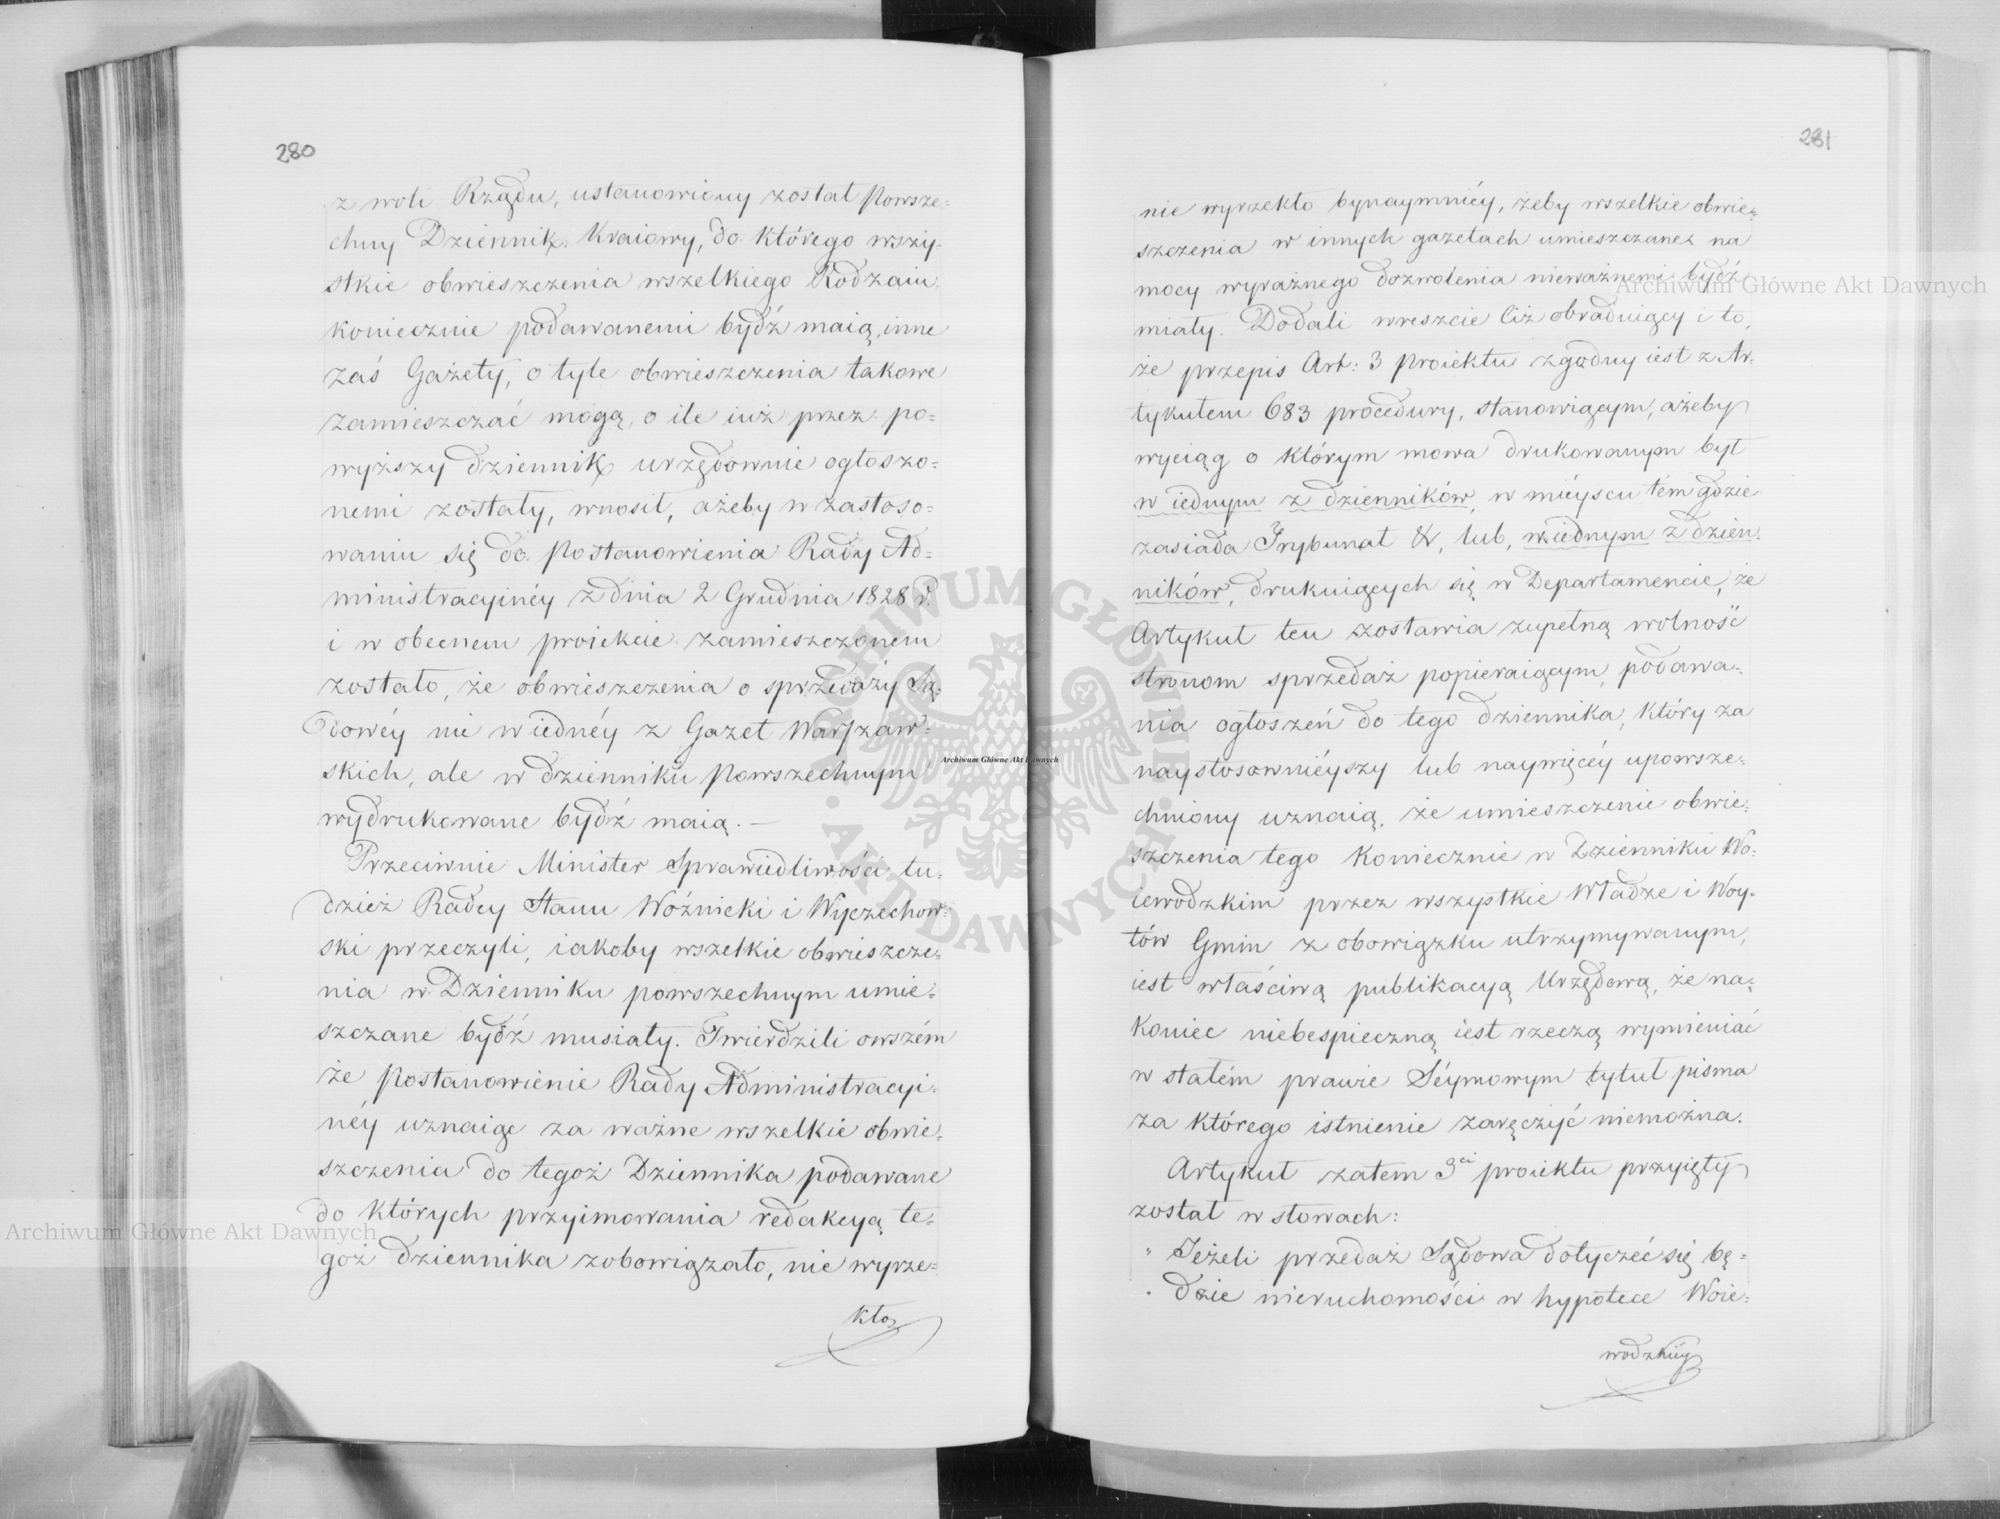 280
z woli Rządu, ustanowiony został Powsze=
chny Dziennik Kraiowy, do którego wszy-
stkie obwieszczenia wszelkiego Rodzaiu
koniecznie podawanemi bydź maią, inne
zaś Gazety, o tyle obwieszczenia takowe
zamieszczać mogą, o ile iuż przez po=
wyższy dziennik urzędownie ogłoszo=
nemi zostały, wnosił, ażeby w zastoso=
waniu się do Postanowienia Rady Ad=
ministracyinéy z dnia 2 Grudnia 1828 r.
i w obecnem proiekcie zamieszczonem
zostało, że obwieszczenia o sprzedaży Są=
dowéy nie w iednéy z Gazet Warszaw=
skich, ale w dzienniku Powszechnym
wydrukowane bydź maią. —
Przeciwnie Minister Sprawiedliwości tu=
dzież Radcy Stanu Woźnicki i Wyczechow=
ski przeczyli, iakoby wszelkie obwieszcze=
nia w Dzienniku powszechnym umie=
szczane bydź musiały. Twierdzili owszém
że Postanowienie Rady Administracyi=
néy uznaiąc za ważne wszelkie obwie=
szczenia do tegoż Dziennika podawane
do których przyimowania redakcyą te=
goż dziennika zobowiązało, nie wyrze=
kło
281
nie wyrzekło bynaymniéy, żeby wszelkie obwie=
szczenia w innych gazetach umieszczane na
mocy wyraźnego dozwolenia nieważnemi bydź
miały. Dodali wreszcie Ciż obraduiący i to,
że przepis Art: 3 proiektu zgodny iest z Ar=
tykułem 683 procedury, stanowiącym, ażeby
wyciąg o którym mowa drukowanym był
w iednym z dzienników, w mieyscu tém gdzie
zasiada Trybunał &, lub, w iednym z dzien=
ników, drukuiących się w Departamencie, że
Artykuł ten zostawia zupełną wolność
stronom sprzedaż popieraiącym, podawa=
nia ogłoszeń do tego dziennika, który za
naystosownieyszy lub naywięcéy upowsze=
chniony uznaią, że umieszczenie obwie=
szczenia tego koniecznie w Dzienniku Wo=
iewodzkim przez wszystkie Władze i Woy=
tów Gmin z obowiązku utrzymywanym,
iest właściwą publikacyą Urzędową, że na=
koniec niebespieczną iest rzeczą wymieniać
w stałém prawie Séymowym tytuł pisma
za którego istnienie zaręczyć niemożna.
Artykuł zatem 3ci proiektu przyięty
został w słowach:
" Jeżeli przedaż Sądowa dotyczeć się bę=
" dzie nieruchomości w hypotece Woie=
wodzkiéy
Archiwum Główne Akt Dawnych
Archiwum Główne Akt Dawnych
Archiwum Główne Akt Dawnych
ARCHIWUM GŁÓWNE
· AKT DAWNYCH ·